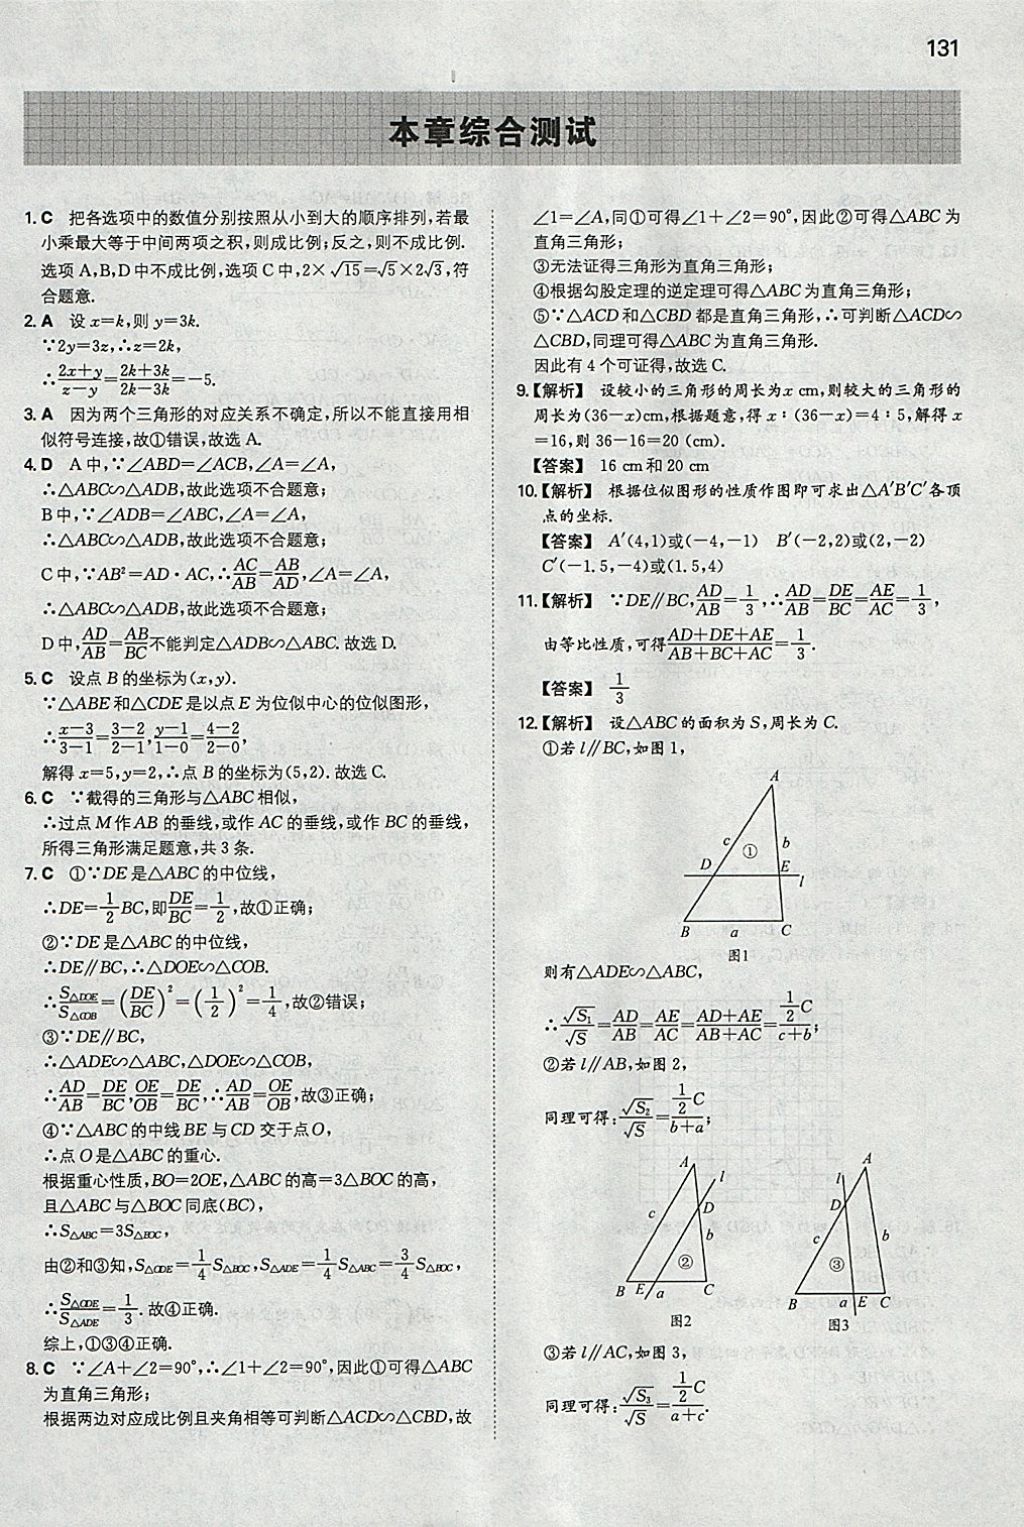 131
本章综合测试
1. C 把各选项中的数值分别按照从小到大的顺序排列,若最
小乘最大等于中间两项之积,则成比例;反之,则不成比例.
选项 A,B,D 中不成比例,选项 C 中,2×√15=√5×2√3,符
合题意.
2. A 设 x=k,则 y=3k.
∵2y=3z,∴z=2k,
∴(2x+y)/(z-y)=(2k+3k)/(2k-3k)=-5.
3. A 因为两个三角形的对应关系不确定,所以不能直接用相
似符号连接,故①错误,故选 A.
4. D A 中,∵∠ABD=∠ACB,∠A=∠A,
∴△ABC∽△ADB,故此选项不合题意;
B 中,∵∠ADB=∠ABC,∠A=∠A,
∴△ABC∽△ADB,故此选项不合题意;
C 中,∵AB²=AD·AC,∴AC/AB=AB/AD,∠A=∠A,
∴△ABC∽△ADB,故此选项不合题意;
D 中,AD/AB=AB/BC不能判定△ADB∽△ABC. 故选 D.
5. C 设点 B 的坐标为(x,y).
∵△ABE 和△CDE 是以点 E 为位似中心的位似图形,
∴(x-3)/(3-1)=(3-2)/(2-1),(y-1)/(1-0)=(4-2)/(2-0),
解得 x=5,y=2,∴点 B 的坐标为(5,2). 故选 C.
6. C ∵截得的三角形与△ABC 相似,
∴过点 M 作 AB 的垂线,或作 AC 的垂线,或作 BC 的垂线,
所得三角形满足题意,共 3 条.
7. C ①∵DE 是△ABC 的中位线,
∴DE=1/2 BC,即DE/BC=1/2,故①正确;
②∵DE 是△ABC 的中位线,
∴DE∥BC,∴△DOE∽△COB.
∴S△DOE/S△COB=(DE/BC)²=(1/2)²=1/4,故②错误;
③∵DE∥BC,
∴△ADE∽△ABC,△DOE∽△COB,
∴AD/AB=DE/BC,OE/OB=DE/BC,∴AD/AB=OE/OB,故③正确;
④∵△ABC 的中线 BE 与 CD 交于点 O,
∴点 O 是△ABC 的重心.
根据重心性质,BO=2OE,△ABC 的高=3△BOC 的高,
且△ABC 与△BOC 同底(BC),
∴S△ABC=3S△BOC,
由②和③知,S△ODE=1/4 S△BOC,S△ADE=1/4 S△ABC=3/4 S△BOC,
∴S△ODE/S△ADE=1/3. 故④正确.
综上,①③④正确.
8. C ∵∠A+∠2=90°,∴∠1+∠2=90°,因此①可得△ABC
为直角三角形;
根据两边对应成比例且夹角相等可判断△ACD∽△CBD,故
∠1=∠A,同①可得∠1+∠2=90°,因此②可得△ABC 为
直角三角形;
③无法证得三角形为直角三角形;
④根据勾股定理的逆定理可得△ABC 为直角三角形;
⑤∵△ACD 和△CBD 都是直角三角形,∴可判断△ACD∽
△CBD,同理可得△ABC 为直角三角形.
因此有 4 个可证得,故选 C.
9.【解析】 设较小的三角形的周长为 x cm,则较大的三角形的
周长为(36-x)cm,根据题意,得 x∶(36-x)=4∶5,解得 x
=16,则 36-16=20 (cm).
【答案】 16 cm 和 20 cm
10.【解析】 根据位似图形的性质作图即可求出△A′B′C′各顶
点的坐标.
【答案】 A′(4,1)或(-4,-1) B′(-2,2)或(2,-2)
C′(-1.5,-4)或(1.5,4)
11.【解析】 ∵DE∥BC,AD/AB=1/3,∴AD/AB=DE/BC=AE/AC=1/3,
由等比性质,可得(AD+DE+AE)/(AB+BC+AC)=1/3.
【答案】 1/3
12.【解析】 设△ABC 的面积为 S,周长为 C.
①若 l∥BC,如图 1,
A
c ① b
D E l
B a C
图1
则有△ADE∽△ABC,
∴√S₁/√S=AD/AB=AE/AC=(AD+AE)/(AB+AC)=(1/2 C)/(c+b);
②若 l∥AB,如图 2,
同理可得:√S₂/√S=(1/2 C)/(b+a);
A l D c b ② B E a C
图2
l A D c b ③ B a E C
图3
③若 l∥AC,如图 3,
同理可得:√S₃/√S=(1/2 C)/(a+c).